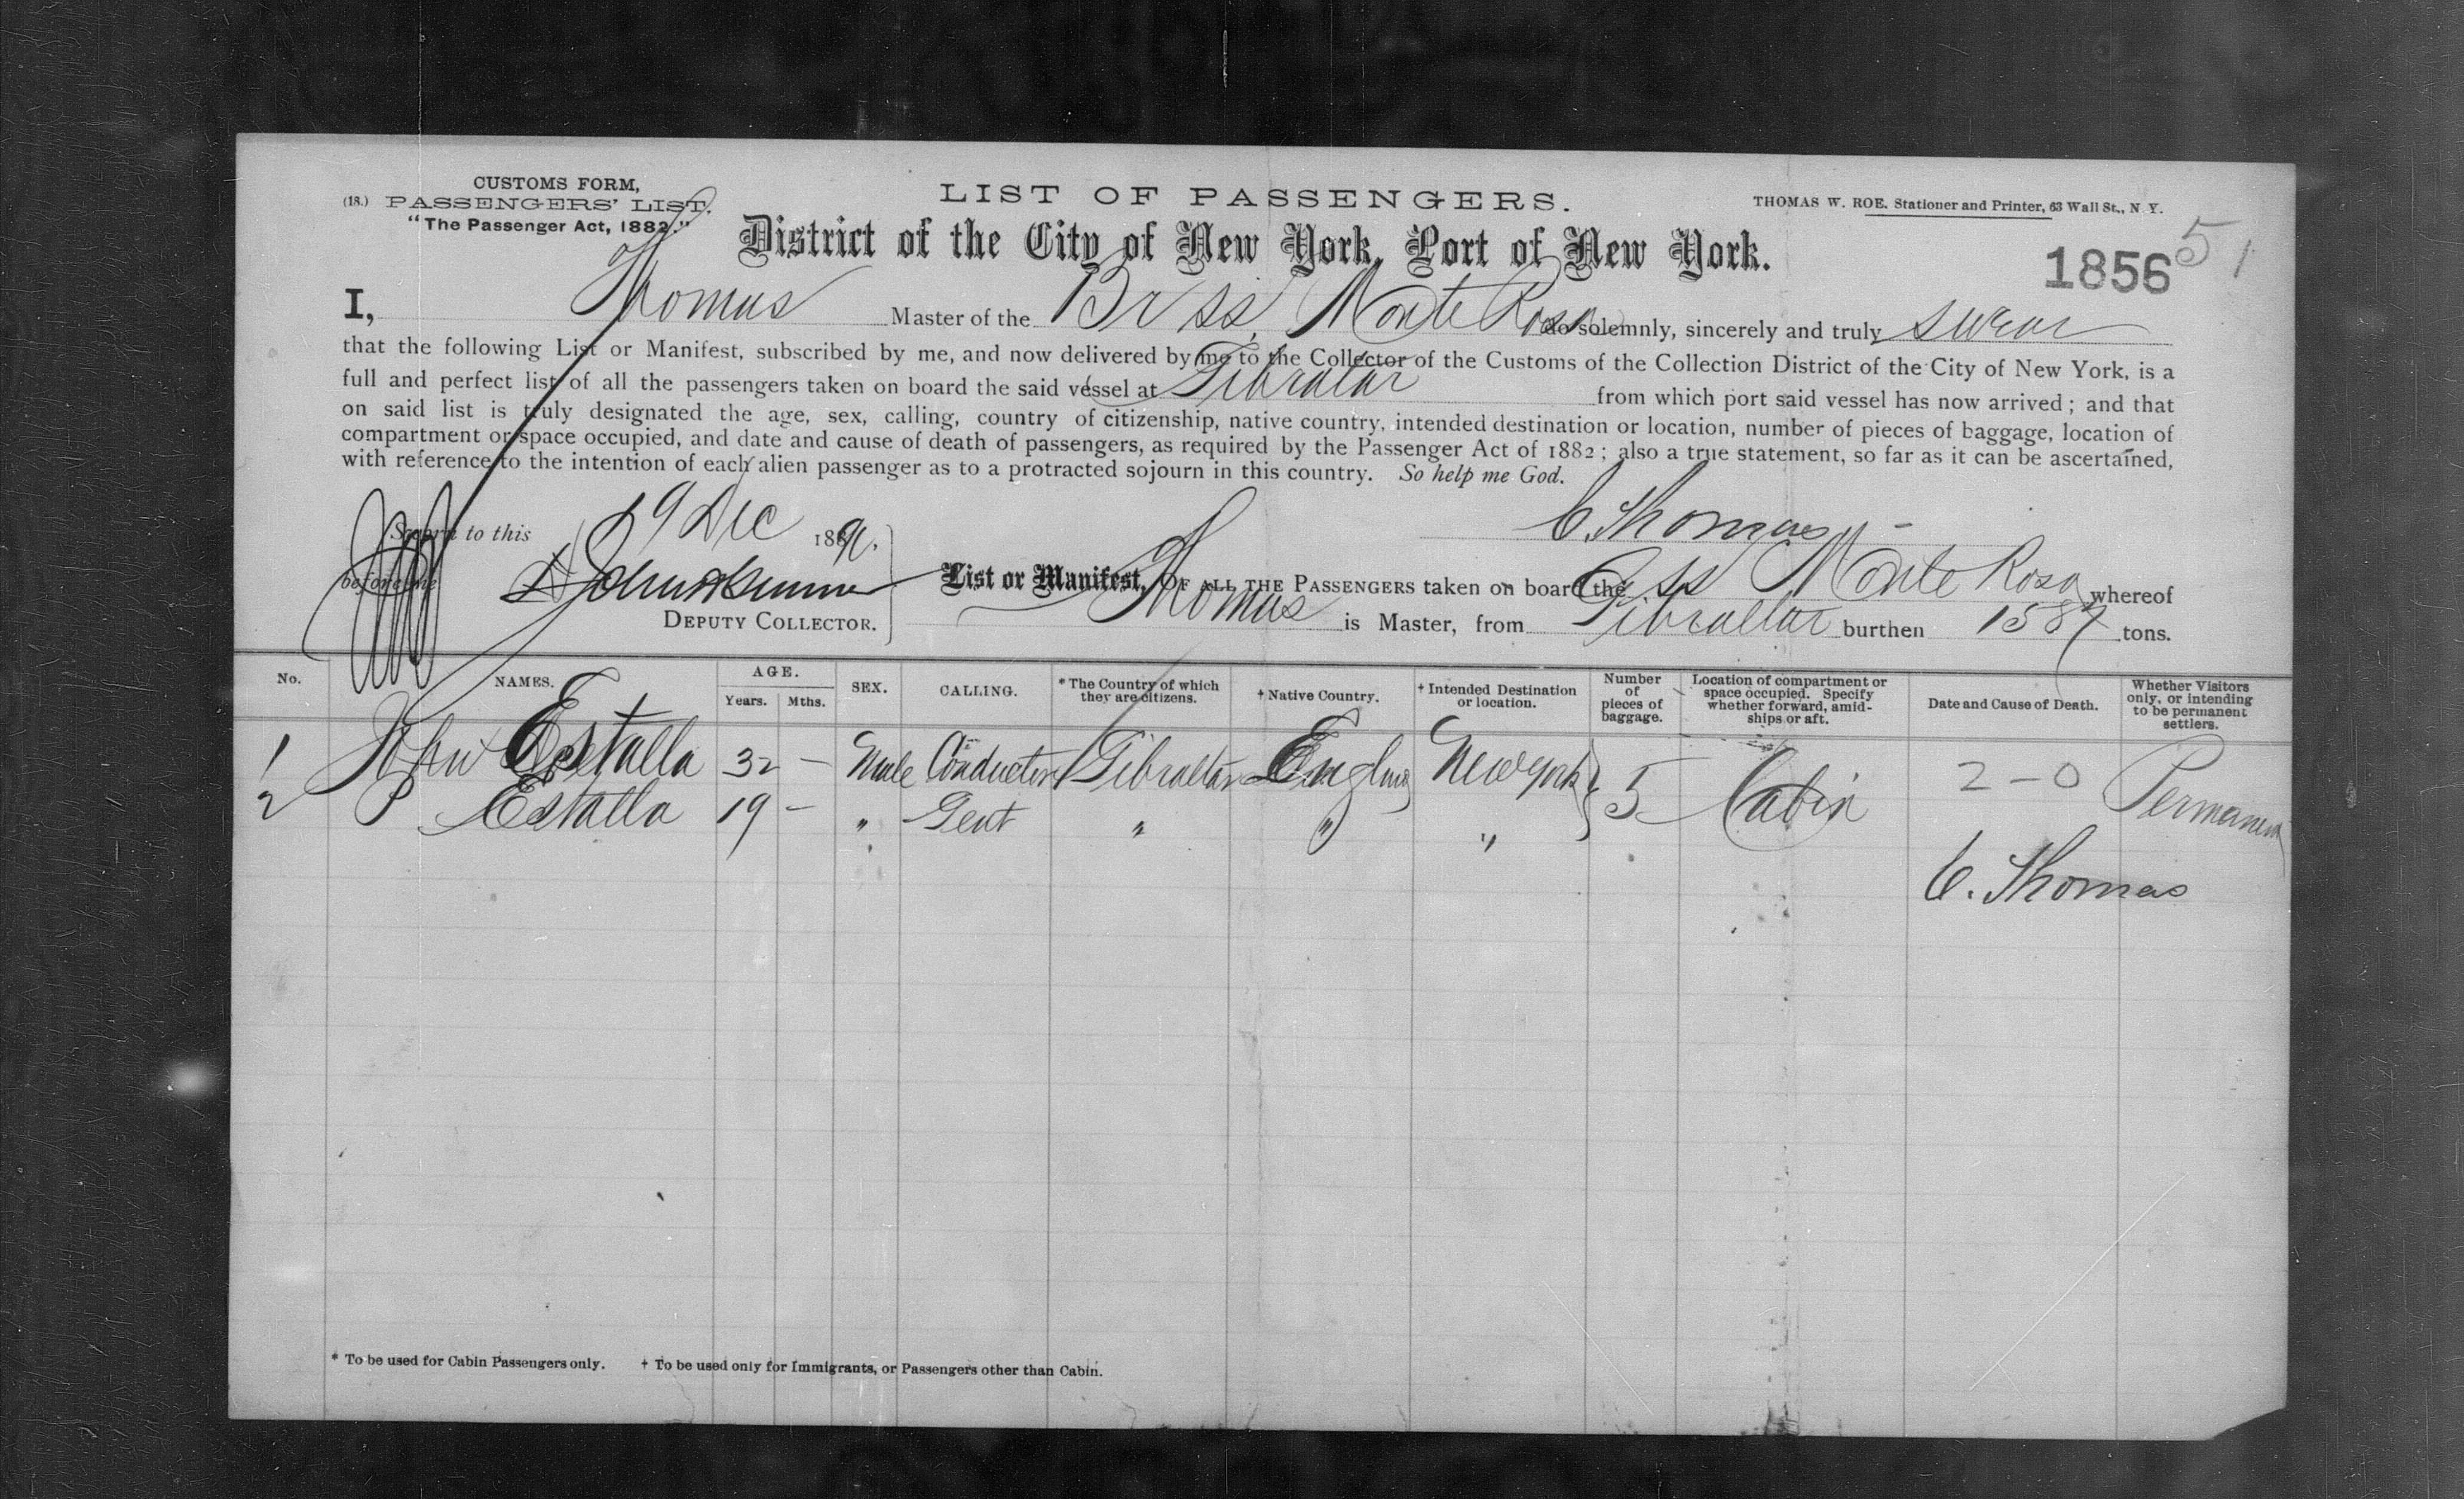 CUSTOMS FORM,
(18.) PASSENGERS' LIST.
"The Passenger Act, 1882."
LIST OF PASSENGERS.
THOMAS W. ROE. Stationer and Printer, 63 Wall St., N. Y.
District of the City of New York, Port of New York.
1856 51
I, Thomas Master of the Br SS Monte Rosa do solemnly, sincerely and truly swear
that the following List or Manifest, subscribed by me, and now delivered by me to the Collector of the Customs of the Collection District of the City of New York, is a
full and perfect list of all the passengers taken on board the said vessel at Gibraltar from which port said vessel has now arrived; and that
on said list is truly designated the age, sex, calling, country of citizenship, native country, intended destination or location, number of pieces of baggage, location of
compartment or space occupied, and date and cause of death of passengers, as required by the Passenger Act of 1882; also a true statement, so far as it can be ascertained,
with reference to the intention of each alien passenger as to a protracted sojourn in this country. So help me God.
Sworn to this 19 Dec 1890. C. Thomas
before me
DEPUTY COLLECTOR.
List or Manifest, OF ALL THE PASSENGERS taken on board the SS Monte Rosa whereof
Thomas is Master, from Gibraltar burthen 1587 tons.
No. NAMES. AGE. Years. Mths. SEX. CALLING. * The Country of which they are citizens. † Native Country. † Intended Destination or location. Number of pieces of baggage. Location of compartment or space occupied. Specify whether forward, amidships or aft. Date and Cause of Death. Whether Visitors only, or intending to be permanent settlers.
1 John Estalla 32 — Male Conductor Gibraltar New York 5 Cabin 2-0 Permanent
2 P Estalla 19 — " Gent " " "
C. Thomas
* To be used for Cabin Passengers only. † To be used only for Immigrants, or Passengers other than Cabin.